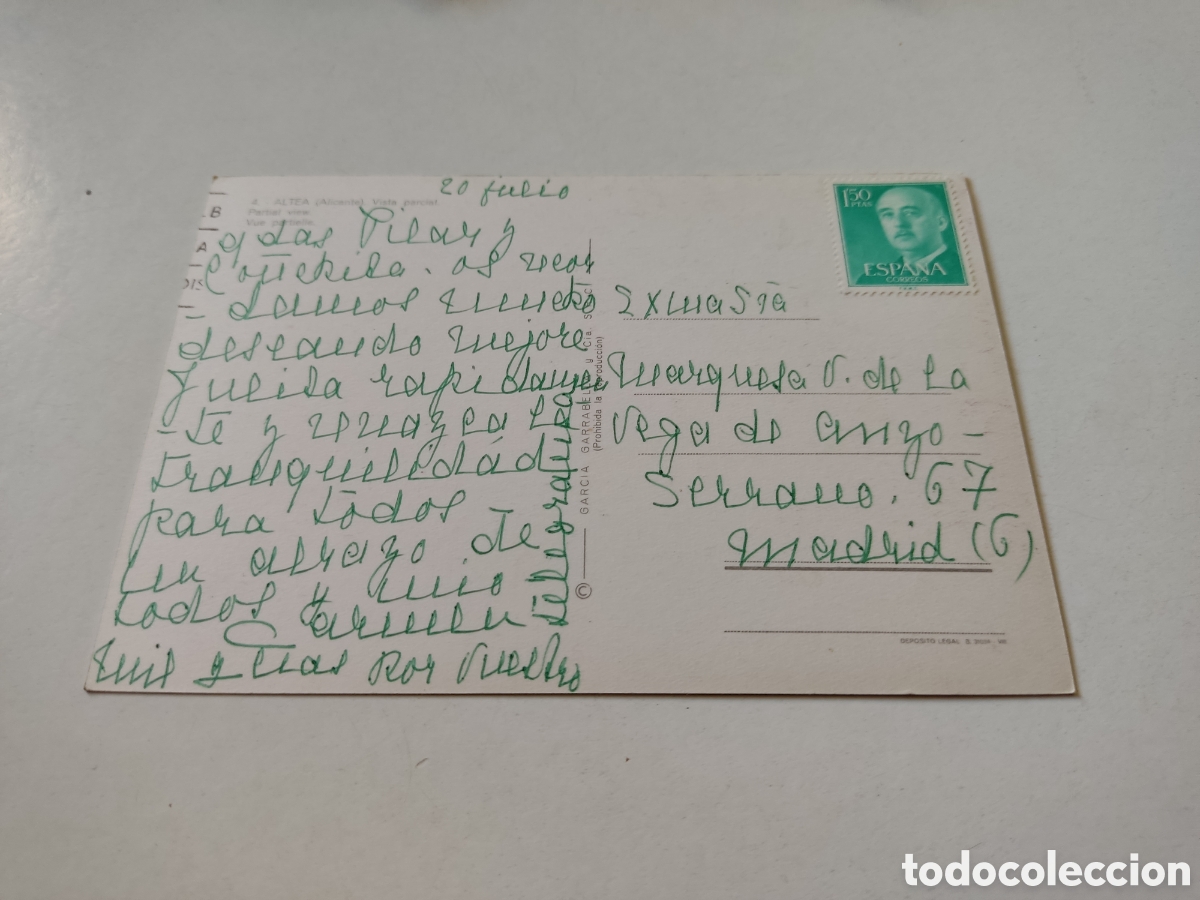 20 julio
4. ALTEA (Alicante). Vista parcial.
Partial view.
Vue partielle.
LB
A
DIS
qdas Pilar y
Conchita. os recor
- damos mucho
deseando mejore
Julita rapidamen
- te y renazca la
tranquilidad
para todos
un abrazo de
todos y mio
Carmen
Mil gcias por vuestro
telegrama
© GARCIA GARRABELLA y Cía.
(Prohibida la reproducción)
1'50
PTAS
ESPAÑA
CORREOS
Exma Sra
Marquesa V. de La
Vega de Anzo -
Serrano. 67
Madrid (6)
DEPOSITO LEGAL B.
todocoleccion